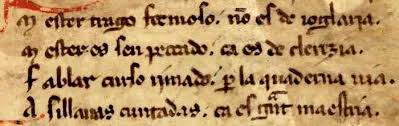 M ester trago fermoso. nō es de ioglaria.
M ester es sen peccado. ca es de clerezia.
F ablar curso rimado. ꝑ la quaderna uia.
A sillauas cuntadas. ca es grāt maestria.